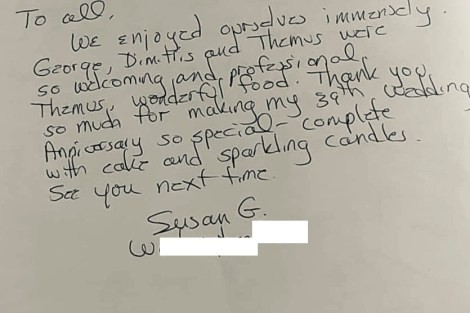 To all,
We enjoyed ourselves immensely.
George, Dimitris and Themus were
so welcoming and professional
Themus, wonderful food. Thank you
so much for making my 39th wedding
Anniversary so special - complete
with cake and sparkling candles.
See you next time.
Susan G.
W